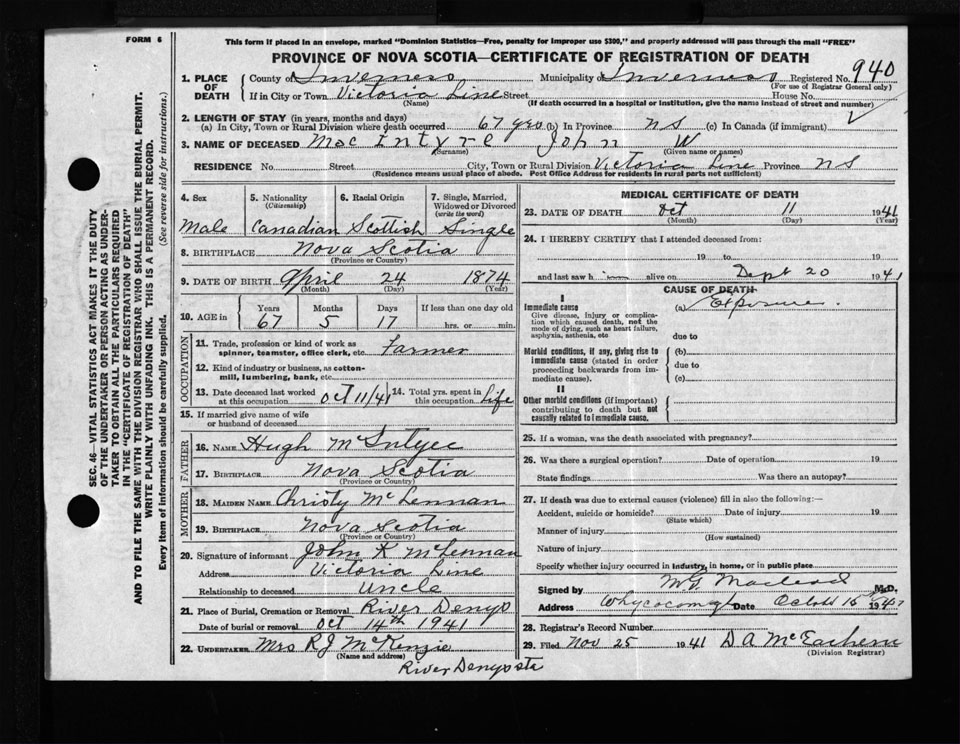 FORM 6
This form if placed in an envelope, marked "Dominion Statistics—Free, penalty for improper use $300," and properly addressed will pass through the mail "FREE"
PROVINCE OF NOVA SCOTIA—CERTIFICATE OF REGISTRATION OF DEATH
SEC. 46—VITAL STATISTICS ACT MAKES IT THE DUTY
OF THE UNDERTAKER OR PERSON ACTING AS UNDER-
TAKER TO OBTAIN ALL THE PARTICULARS REQUIRED
IN THE "CERTIFICATE OF REGISTRATION OF DEATH"
AND TO FILE THE SAME WITH THE DIVISION REGISTRAR WHO SHALL ISSUE THE BURIAL PERMIT.
WRITE PLAINLY WITH UNFADING INK. THIS IS A PERMANENT RECORD.
Every item of information should be carefully supplied. (See reverse side for instructions.)
1. PLACE OF DEATH County of Inverness Municipality of Inverness Registered No. 940
(For use of Registrar General only)
If in City or Town Victoria Line Street House No.
(Name) (If death occurred in a hospital or institution, give the name instead of street and number)
2. LENGTH OF STAY (in years, months and days)
(a) In City, Town or Rural Division where death occurred 67 yrs (b) In Province NS (c) In Canada (if immigrant)
3. NAME OF DECEASED MacIntyre John W
(Surname) (Given name or names)
RESIDENCE No. Street City, Town or Rural Division Victoria Line Province NS
(Residence means usual place of abode. Post Office Address for residents in rural parts not sufficient)
4. Sex 5. Nationality (Citizenship) 6. Racial Origin 7. Single, Married, Widowed or Divorced (write the word)
Male Canadian Scottish Single
8. BIRTHPLACE Nova Scotia
(Province or Country)
9. DATE OF BIRTH April 24 1874
(Month) (Day) (Year)
10. AGE in Years Months Days If less than one day old
67 5 17 hrs. or min.
OCCUPATION
11. Trade, profession or kind of work as spinner, teamster, office clerk, etc. Farmer
12. Kind of industry or business, as cotton-mill, lumbering, bank, etc.
13. Date deceased last worked at this occupation Oct 11/41 14. Total yrs. spent in this occupation life
15. If married give name of wife or husband of deceased
FATHER
16. NAME Hugh McIntyre
17. BIRTHPLACE Nova Scotia
(Province or Country)
MOTHER
18. MAIDEN NAME Christy McLennan
19. BIRTHPLACE Nova Scotia
(Province or Country)
20. Signature of informant John K McLennan
Address Victoria Line
Relationship to deceased Uncle
21. Place of Burial, Cremation or Removal River Denys
Date of burial or removal Oct 14th 1941
22. UNDERTAKER Mrs RJ McKenzie
(Name and address)
River Denys sta
MEDICAL CERTIFICATE OF DEATH
23. DATE OF DEATH Oct 11 1941
(Month) (Day) (Year)
24. I HEREBY CERTIFY that I attended deceased from:
19 to 19
and last saw him alive on Sept 20 1941
CAUSE OF DEATH
I
Immediate cause (a) Exposure.
Give disease, injury or complication which caused death, not the mode of dying, such as heart failure, asphyxia, asthenia, etc
due to
Morbid conditions, if any, giving rise to immediate cause (stated in order proceeding backwards from immediate cause). (b)
due to
(c)
II
Other morbid conditions (if important) contributing to death but not causally related to immediate cause.
25. If a woman, was the death associated with pregnancy?
26. Was there a surgical operation? Date of operation 19
State findings Was there an autopsy?
27. If death was due to external causes (violence) fill in also the following:—
Accident, suicide or homicide? Date of injury 19
(State which)
Manner of injury
(How sustained)
Nature of injury
Specify whether injury occurred in industry, in home, or in public place
Signed by Macleod M.D.
Address Whycocomagh Date 15 1941
28. Registrar's Record Number
29. Filed Nov 25 1941 D A McEachern
(Division Registrar)